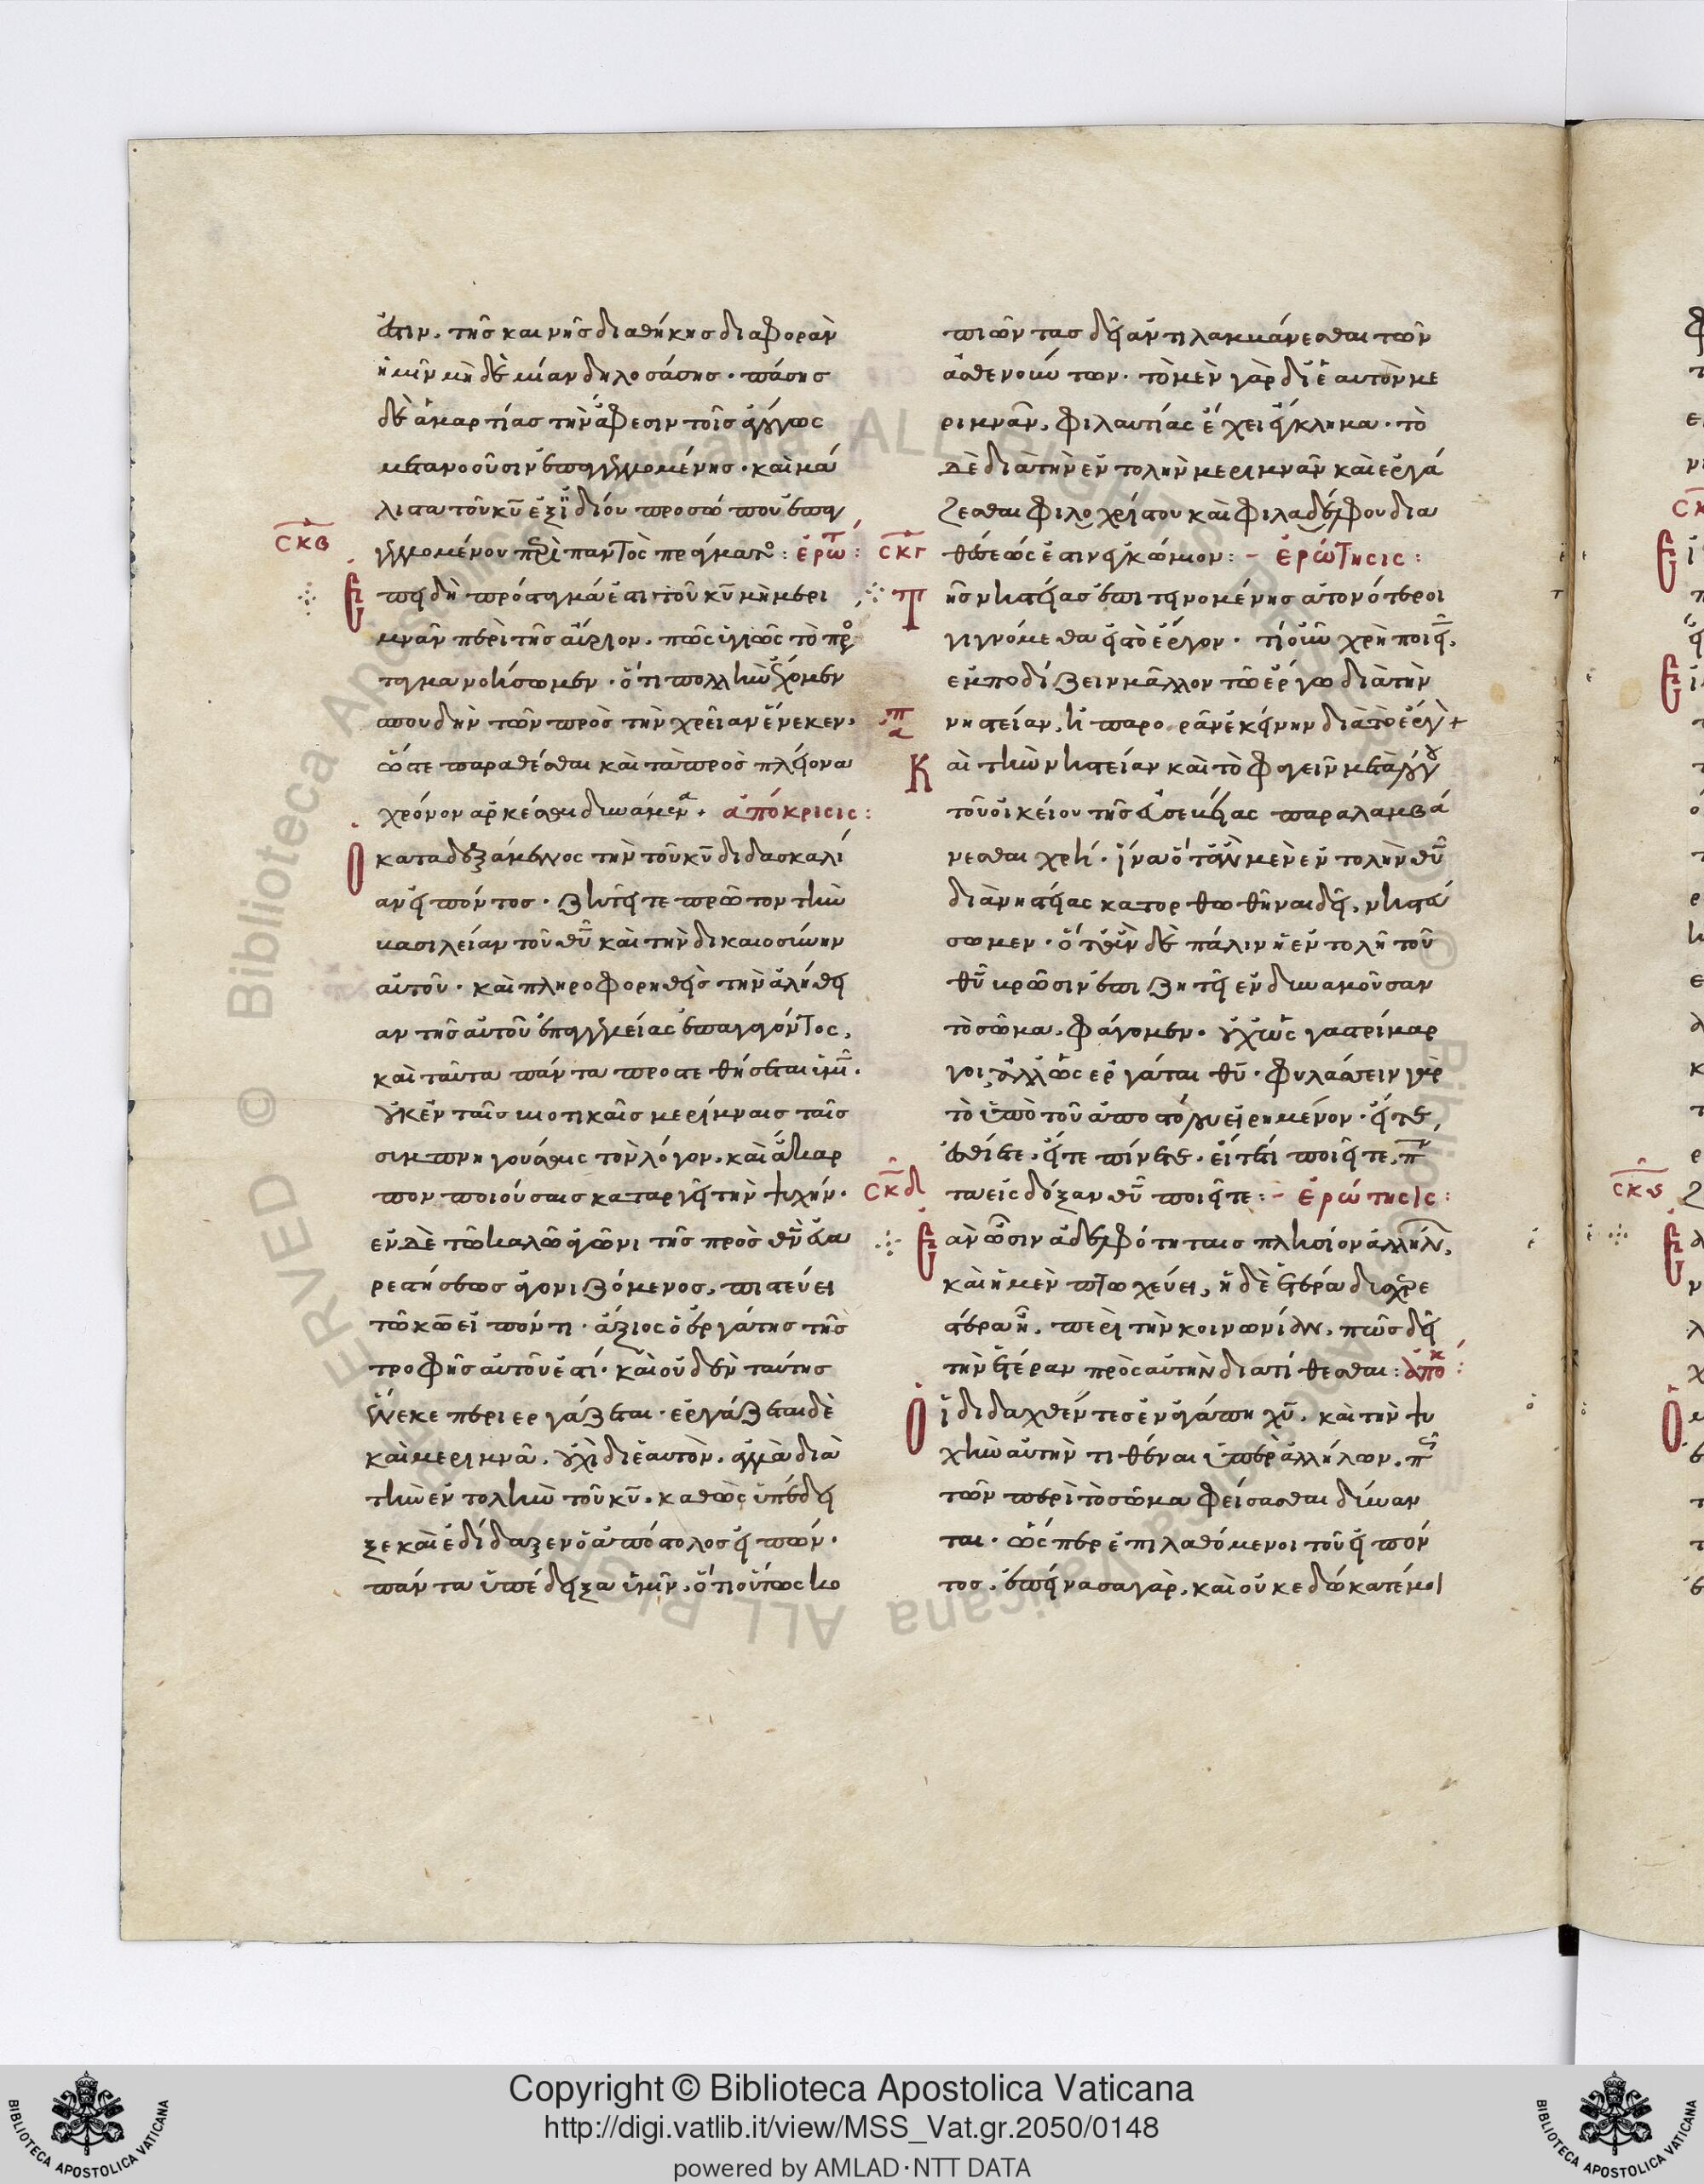 ἐστιν. τῆς καινῆς διαθήκης διαφορὰν
ἡμῖν μηδὲ μίαν δηλοσάσης · πάσης
δὲ ἁμαρτίας τὴν ἄφεσιν τοῖς ἀξίως
μετανοοῦσιν ἐπαγγελομένης · καὶ μά
λιστα τοῦ κυ ἐξ ἰδίου προσώπου ἐπαγ
σκβ
γελομένου περὶ παντὸς πράγματος : ἐρώτ :
Ἐπειδὴ πρόσταγμά ἐστι τοῦ κυ μὴ μερι
μνᾶν περὶ τῆς αὔριον. πῶς ὑγιῶς τὸ πρό
σταγμα νοήσωμεν · ὅτι πολλὴν ἔχομεν
σπουδὴν τῶν πρὸς τὴν χρείαν ἕνεκεν.
ὥστε παραθέσθαι καὶ τὰ πρὸς πλείονα
χρόνον ἀρκέσαι δυνάμενα + ἀπόκρισις :
Ὁ καταδεξάμενος τὴν τοῦ κυ διδασκαλί
αν εἰπόντος · ζητεῖτε πρῶτον τὴν
βασιλείαν τοῦ θυ καὶ τὴν δικαιοσύνην
αὐτοῦ · καὶ πληροφορηθεὶς τὴν ἀλήθει
αν τῆς αὐτοῦ ἐπαγγελείας ἐπαγαγόντος,
καὶ ταῦτα πάντα προστεθήσεται ὑμῖν ·
οὐκ ἐν ταῖς βιοτικαῖς μερίμναις ταῖς
συμπνηγούσαις τὸν λόγον. καὶ ἄκαρ
πον ποιούσαις καταργεῖ τὴν ψυχήν ·
ἐν δὲ τῶ καλῶ ἀγῶνι τῆς πρὸς θν εὐα
ρεστήσεως ἀγονιζόμενος, πιστεύει
τῶ κω εἰπόντι · ἄξιος ὁ ἐργάτης τῆς
τροφῆς αὐτοῦ ἐστί · καὶ οὐδὲν ταύτης
ἕνεκε περιεργάζεται · ἐργάζεται δὲ
καὶ μεριμνᾶ. οὐχὶ δι ἑαυτὸν. ἀλλὰ διὰ
τὴν ἐντολὴν τοῦ κυ. καθὼς ὑπέδει
ξε καὶ ἐδίδαξεν ὁ ἀπόστολος εἰπών ·
πάντα ὑπέδειξα ὑμῖν. ὅτι οὕτως κο
πιῶντας δεῖ ἀντιλαμβάνεσθαι τῶν
ἀσθενούντων · τὸ μὲν γὰρ δι ἑαυτὸν με
ριμνᾶν, φιλαυτίας ἔχει ἔγκλημα · τὸ
δὲ διὰ τὴν ἐντολὴν μεριμνᾶν καὶ ἐργά
ζεσθαι φιλοχρίστου καὶ φιλαδέλφου δια
σκγ
θέσεώς ἐστιν ἐγκώμιον : - ἐρώτησις :
Τῆς νηστείας ἐπιτεινομένης ἀτονότεροι
γιγνόμεθα εἰς τὸ ἔργον · τί οὖν χρὴ ποιεῖν,
ἐμποδίζειν μᾶλλον τῶ ἔργω διὰ τὴν
νηστείαν. ἢ παρορᾶν ἐκείνην διὰ τὸ ἔργον +
Καὶ τὴν νηστείαν καὶ τὸ φαγεῖν μετὰ λόγου
τοῦ οἰκείου τῆς εὐσεβείας παραλαμβά
νεσθαι χρή · ἵνα ὅταν μὲν ἐντολὴν θυ
διὰ νηστείας κατορθωθῆναι δεῖ, νηστεύ
σωμεν · ὅταν δὲ πάλιν ἡ ἐντολὴ τοῦ
θυ βρῶσιν ἐπιζητεῖ ἐνδυναμοῦσαν
τὸ σῶμα. φάγομεν. οὐχ ὡς γαστρίμαρ
γοι, ἀλλ ὡς ἐργάται θυ · φυλάσσειν γὰρ
τὸ ὑπὸ τοῦ ἀποστόλου εἰρημένον · εἴτε
ἐσθίετε. εἴτε πίνετε. εἴτέ τι ποιεῖτε, πάν
σκδ
τα εἰς δόξαν θυ ποιεῖτε : - ἐρώτησις :
Ἐὰν ὦσιν ἀδελφότητες πλησίον ἀλλήλων,
καὶ ἡ μὲν πτωχεύει, ἡ δὲ ἑτέρα δυσχε
στέρα ἦ. περὶ τὴν κοινωνίαν. πῶς δεῖ
τὴν ἑτέραν πρὸς αὐτὴν διατίθεσθαι : ἀπόκ :
Οἱ διδαχθέντες ἐν ἀγάπη χυ. καὶ τὴν ψυ
χὴν αὐτὴν τιθέναι ὑπὲρ ἀλλήλων. πῶς
τῶν περὶ τὸ σῶμα φείσασθαι δύναν
ται · ὥσπερ ἐπιλαθόμενοι τοῦ εἰπόν
τος. ἐπείνασα γὰρ. καὶ οὐκ ἐδώκατέ μοι
Copyright © Biblioteca Apostolica Vaticana
http://digi.vatlib.it/view/MSS_Vat.gr.2050/0148
powered by AMLAD·NTT DATA